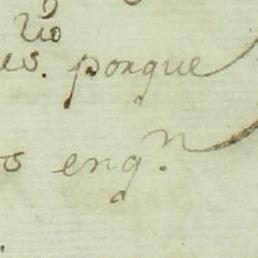 rio
es. porque
s enq.n